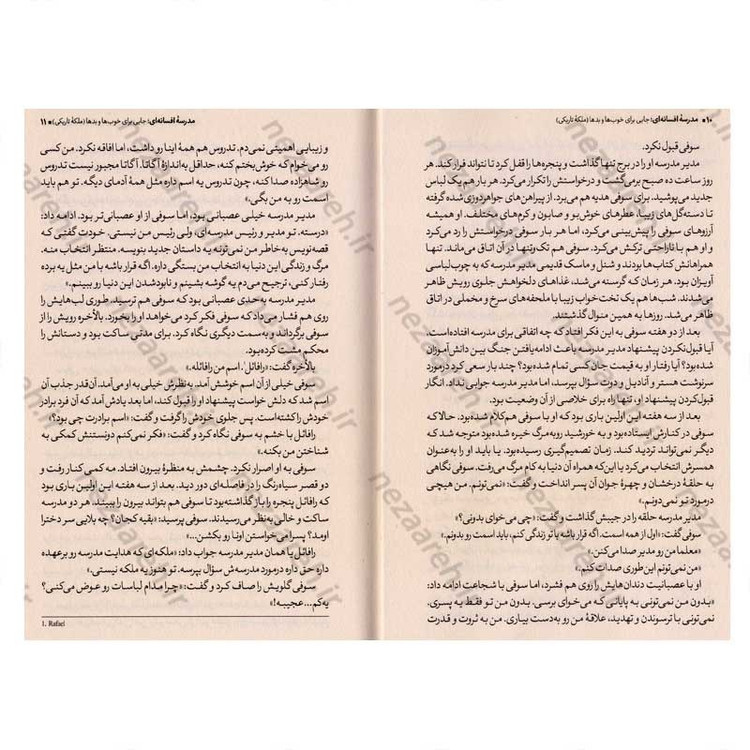 ۱۰ • مدرسهٔ افسانه‌ای: جایی برای خوب‌ها و بدها (ملکهٔ تاریکی)
سوفی قبول نکرد.
مدیر مدرسه او را در برج تنها گذاشت و پنجره‌ها را قفل کرد تا نتواند فرار کند. هر
روز ساعت ده صبح برمی‌گشت و درخواستش را تکرار می‌کرد. هر بار هم یک لباس
جدید می‌پوشید. برای سوفی هدیه هم می‌برد. از پیراهن‌های جواهردوزی شده گرفته
تا دسته‌گل‌های زیبا، عطرهای خوش‌بو و صابون و کرم‌های مختلف. او همیشه
آرزوهای سوفی را پیش‌بینی می‌کرد، اما هر بار سوفی درخواستش را رد می‌کرد
و او هم با ناراحتی ترکش می‌کرد. سوفی هم تک‌وتنها در آن اتاق می‌ماند. تنها
همراهانش کتاب‌ها بودند و شنل و ماسک قدیمی مدیر مدرسه که به چوب‌لباسی
آویزان بود. هر زمان که گرسنه می‌شد، غذاهای دلخواهش جلوی رویش ظاهر
می‌شدند. شب‌ها هم یک تخت‌خواب زیبا با ملحفه‌های سرخ و مخملی در اتاق
ظاهر می‌شد. روزها به همین منوال گذشتند.
بعد از دو هفته سوفی به این فکر افتاد که چه اتفاقی برای مدرسه افتاده است.
آیا قبول‌نکردن پیشنهاد مدیر مدرسه باعث ادامه‌یافتن جنگ بین دانش‌آموزان
شده‌بود؟ آیا رفتار او به قیمت جان کسی تمام شده‌بود؟ چند بار سعی کرد درمورد
سرنوشت هستر و آنادیل و دوت سؤال بپرسد، اما مدیر مدرسه جوابی نداد. انگار
قبول‌کردن پیشنهاد او، تنها راه برای خلاصی از آن وضعیت بود.
بعد از سه هفته این اولین باری بود که او با سوفی هم‌کلام شده‌بود. حالا که
سوفی در کنارش ایستاده‌بود و به خورشید روبه‌مرگ خیره شده‌بود متوجه شد که
دیگر نمی‌تواند تردید کند. زمان تصمیم‌گیری رسیده‌بود. یا باید او را به‌عنوان
همسرش انتخاب می‌کرد یا این‌که همراه آن دنیا به کام مرگ می‌رفت. سوفی نگاهی
به حلقهٔ درخشان و چهرهٔ جوان آن پسر انداخت و گفت: «نمی‌تونم. من هیچی
درمورد تو نمی‌دونم.»
مدیر مدرسه حلقه را در جیبش گذاشت و گفت: «چی می‌خوای بدونی؟»
سوفی گفت: «اول از همه اسمت. اگه قرار باشه با تو زندگی کنم، باید اسمت رو بدونم.»
«معلما من رو مدیر صدا می‌کنن.»
«من نمی‌تونم این‌طوری صدات کنم.»
او با عصبانیت دندان‌هایش را روی هم فشرد، اما سوفی با شجاعت ادامه داد:
«بدون من نمی‌تونی به پایانی که می‌خوای برسی. بدون من تو فقط یه پسری.
نمی‌تونی با ترسوندن و تهدید، علاقهٔ من رو به‌دست بیاری. من به ثروت و قدرت
مدرسهٔ افسانه‌ای: جایی برای خوب‌ها و بدها (ملکهٔ تاریکی) • ۱۱
و زیبایی اهمیتی نمی‌دم. تدروس هم همهٔ اینا رو داشت، اما افاقه نکرد. من کسی
رو می‌خوام که خوش‌بختم کنه، حداقل به‌اندازهٔ آگاتا. آگاتا مجبور نیست تدروس
رو شاهزاده صدا کنه، چون تدروس یه اسم داره مثل همهٔ آدمای دیگه. تو هم باید
اسمت رو به من بگی.»
مدیر مدرسه خیلی عصبانی بود، اما سوفی از او عصبانی‌تر بود. ادامه داد:
«درسته. تو مدیر و رئیس مدرسه‌ای، ولی رئیس من نیستی. خودت گفتی که
قصه‌نویس به‌خاطر من نمی‌تونه یه داستان جدید بنویسه. منتظر انتخاب منه.
مرگ و زندگی این دنیا به انتخاب من بستگی داره. اگه قرار باشه با من مثل یه برده
رفتار کنی، ترجیح می‌دم یه گوشه بشینم و نابودشدن این دنیا رو ببینم.»
مدیر مدرسه به‌حدی عصبانی بود که سوفی هم ترسید. طوری لب‌هایش را
روی هم فشار می‌داد که سوفی فکر کرد می‌خواهد او را بخورد. بالأخره رویش را از
سوفی برگرداند و به‌سمت دیگری نگاه کرد. برای مدتی ساکت بود و دستانش را
محکم مشت کرده‌بود.
بالأخره گفت: «رافائل¹. اسم من رافائله.»
سوفی خیلی از آن اسم خوشش آمد. به‌نظرش خیلی به او می‌آمد. آن‌قدر جذب آن
اسم شد که دلش خواست پیشنهاد او را قبول کند، اما بعد یادش آمد که آن فرد برادر
خودش را کشته‌است. پس جلوی خودش را گرفت و گفت: «اسم برادرت چی بود؟»
رافائل با خشم به سوفی نگاه کرد و گفت: «فکر نمی‌کنم دونستنش کمکی به
شناختن من بکنه.»
سوفی به او اصرار نکرد. چشمش به منظرهٔ بیرون افتاد. مه کمی کنار رفت و
دو قصر سیاه‌رنگ را در فاصله‌ای دور دید. بعد از سه هفته این اولین باری بود
که رافائل پنجره را باز گذاشته‌بود تا سوفی هم بتواند بیرون را ببیند. هر دو مدرسه
ساکت و خالی به‌نظر می‌رسیدند. سوفی پرسید: «بقیه کجان؟ چه بلایی سر دخترا
اومد؟ پسرا می‌خواستن اونا رو بکشن...»
رافائل یا همان مدیر مدرسه جواب داد: «ملکه‌ای که هدایت مدرسه رو برعهده
داره حق داره درمورد مدرسه‌ش سؤال بپرسه. تو هنوز یه ملکه نیستی.»
سوفی گلویش را صاف کرد و گفت: «چرا مدام لباسات رو عوض می‌کنی؟
یه‌کم... عجیبه!»
1. Rafael
nezaareh.ir